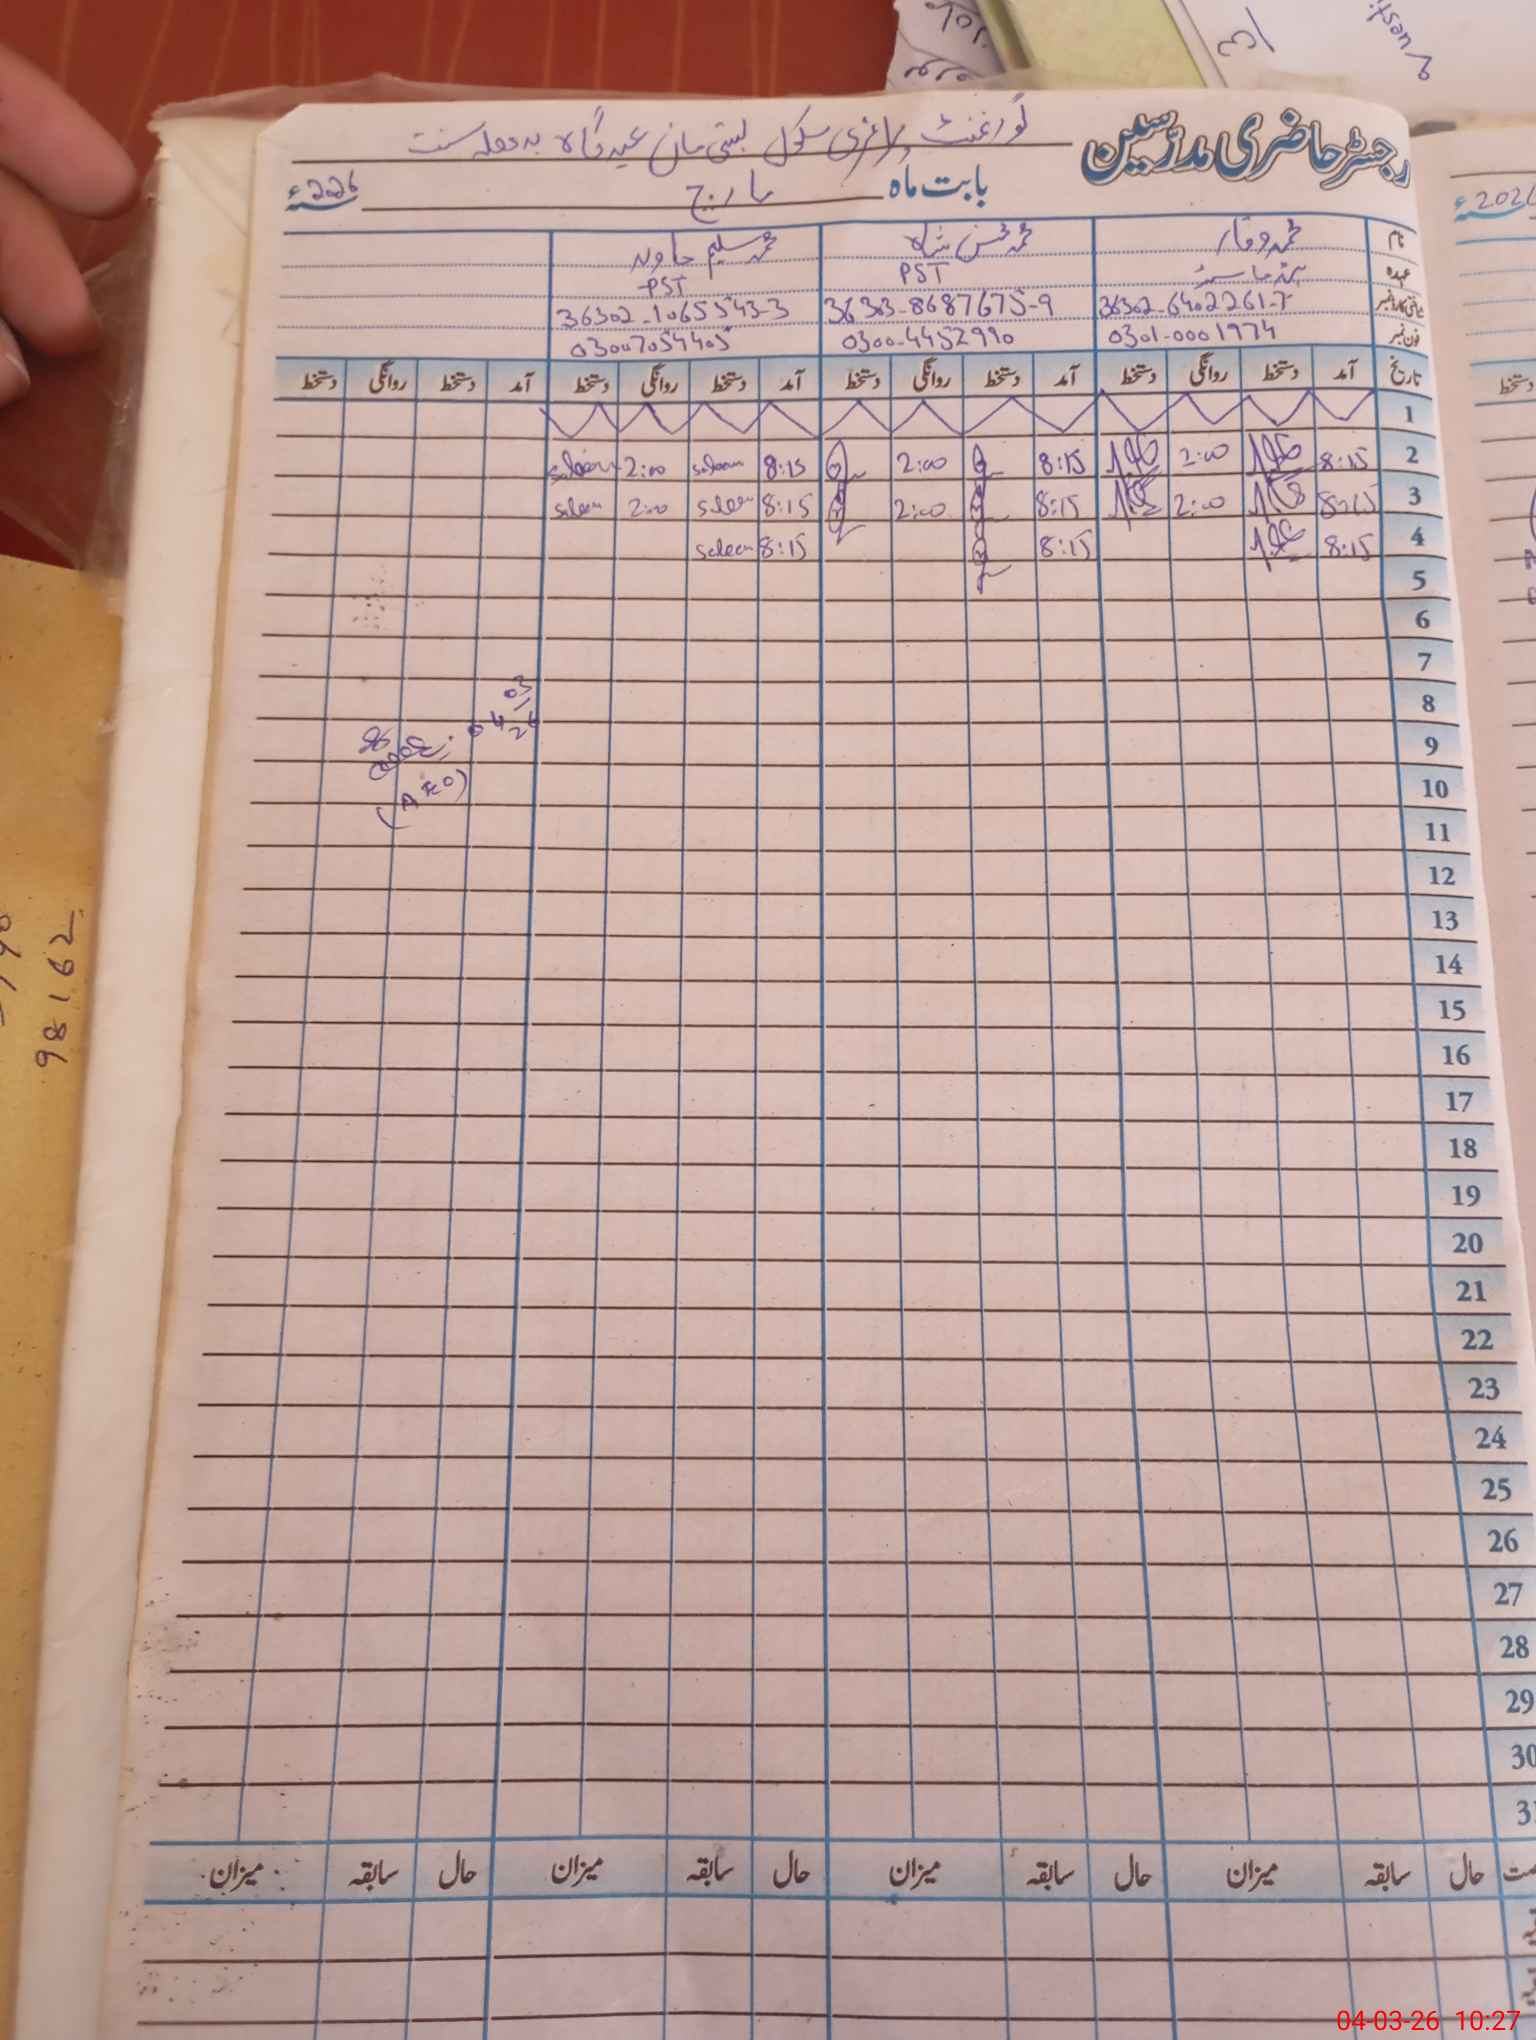 رجسٹر حاضری مدرسین
گورنمنٹ پرائمری سکول بستی
بابت ماہ مارچ 2026ء
نام محمد وقار محمد محسن شاہ محمد سلیم جاوید
عہدہ ہیڈ ماسٹر PST PST
شناختی کارڈ نمبر 36302-6402261-7 36303-8687675-9 36302-1065543-3
فون نمبر 0301-0001974 0300-4452990 03007054405
تاریخ آمد دستخط روانگی دستخط آمد دستخط روانگی دستخط آمد دستخط روانگی دستخط آمد دستخط روانگی دستخط
1
2 8:15 2:00 8:15 2:00 8:15 saleem 2:00 saleem
3 8:15 2:00 8:15 2:00 8:15 saleem 2:00 saleem
4 8:15 8:15 8:15 saleem
5
6
7
8
9
10
11
12
13
14
15
16
17
18
19
20
21
22
23
24
25
26
27
28
29
30
31
04 03 26
(AEO)
حال سابقہ میزان حال سابقہ میزان حال سابقہ میزان حال سابقہ میزان
98162
04-03-26 10:27